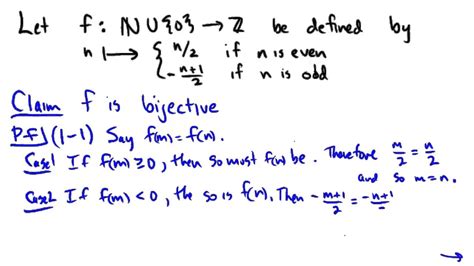 Let f: ℕ∪{0} → ℤ be defined by
n ↦ { n/2 if n is even
-(n+1)/2 if n is odd
Claim f is bijective
Pf (1-1) Say f(m)=f(n).
Case1 If f(m)≥0, then so must f(n) be. Therefore m/2 = n/2
and so m=n.
Case2 If f(m)<0, the so is f(n). Then -(m+1)/2 = -(n+1)/